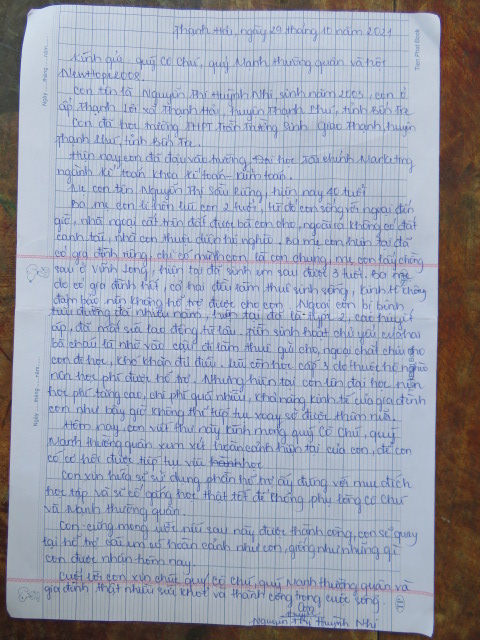 Thạnh Hải, ngày 29 tháng 10 năm 2021
Kính gửi quý Cô Chú, quý Mạnh thường quân và hội
NewHope2008.
Con tên là Nguyễn Thị Huỳnh Nhi, sinh năm 2003, con ở
ấp Thạnh Lợi xã Thạnh Hải, huyện Thạnh Phú, tỉnh Bến Tre
Con đã học trường THPT Trần Trường Sinh Giao Thạnh, huyện
Thạnh Phú, tỉnh Bến Tre.
Hiện nay con đã đậu vào trường Đại học Tài chính Marketing
ngành Kế toán khoa Kế toán - Kiểm toán.
Mẹ con tên Nguyễn Thị Sáu, hiện nay 40 tuổi
Ba mẹ con li hôn lúc con 2 tuổi, từ đó con sống với ngoại đến
giờ, nhà ngoại cất trên đất được bà con cho, ngoài ra không có đất
canh tác, nhà con thuộc diện hộ nghèo. Ba mẹ con hiện tại đã
có gia đình riêng, chỉ có mình con là con chung, mẹ con lấy chồng
sau ở Vĩnh Long, hiện tại đã sinh em sau được 3 tuổi. Ba mẹ
do có gia đình hết, cả hai đều làm thuê sinh sống, kinh tế không
đảm bảo nên không hỗ trợ được cho con. Ngoại con bị bệnh
tiểu đường đã nhiều năm, hiện tại đã là type 2, cao huyết
áp, đã mất sức lao động từ lâu. Tiền sinh hoạt chủ yếu của hai
bà cháu là nhờ vào cậu đi làm thuê gửi cho, ngoại chắt chiu cho
con đi học, khó khăn đủ điều. Lúc còn học cấp 3 do thuộc hộ nghèo
nên học phí được hỗ trợ. Nhưng hiện tại con lên đại học nên
học phí tăng cao, chi phí quá nhiều, khả năng kinh tế của gia đình
con như bây giờ không thể tiếp tục xoay sở được thêm nữa.
Hôm nay, con viết thư này kính mong quý Cô Chú, quý
Mạnh thường quân xem xét hoàn cảnh hiện tại của con, để con
có cơ hội được tiếp tục việc học.
Con xin hứa sẽ sử dụng phần hỗ trợ ấy đúng với mục đích
học tập và sẽ cố gắng học thật tốt để không phụ lòng cô Chú
và Mạnh thường quân.
Con cũng mong ước nếu sau này được thành công, con sẽ quay
lại hỗ trợ các em có hoàn cảnh như con, giống như những gì
con được nhận hôm nay.
Cuối lời con xin chúc quý cô Chú, quý Mạnh thường quân và
gia đình thật nhiều sức khoẻ và thành công trong cuộc sống.
Con
Huỳnh
Nguyễn Thị Huỳnh Nhi
Tien Phat Book